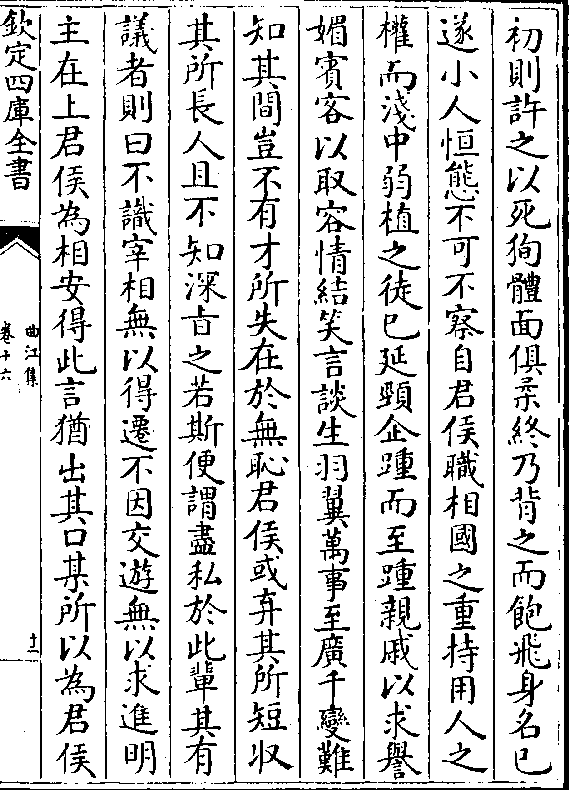 初則許之以死狥體面俱柔終乃背之而飽飛身名已
遂小人恒態不可不察自君侯職相國之重持用人之
權而淺中弱植之徒已延頸企踵而至踵親戚以求譽
媚賓客以取容情結笑言談生羽翼萬事至廣千變難
知其間豈不有才所失在於無恥君侯或弃其所短收
其所長人且不知深㫖之若斯便謂盡私於此輩其有
議者則曰不識宰相無以得遷不因交遊無以求進明
主在上君侯為相安得此言猶出其口某所以為君侯
欽定四庫全書
曲江集
卷十六
十二